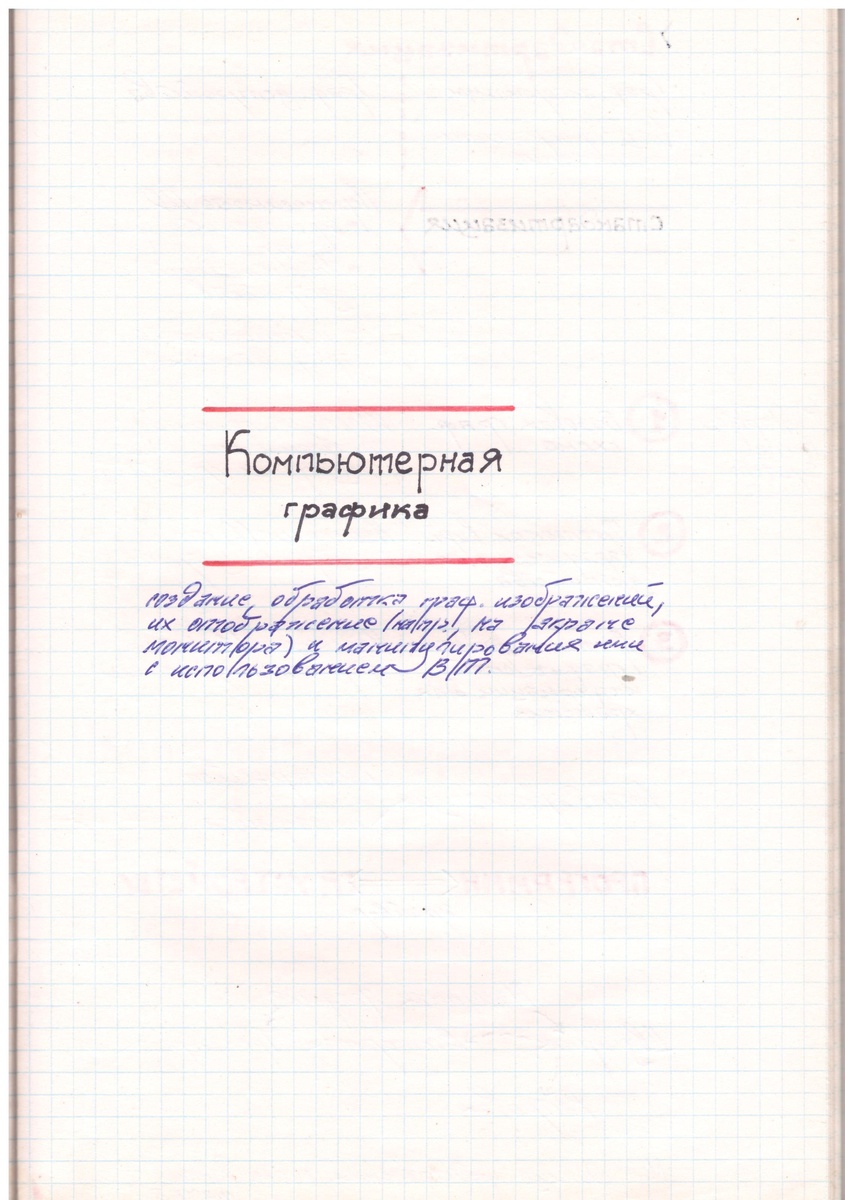 Компьютерная
графика
создание, обработка граф. изображений,
их отображение (напр., на экране
монитора) и манипулирования ими
с использованием ВТ.